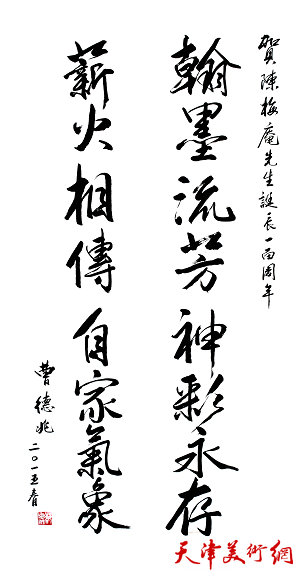 賀陳梅庵先生誕辰一百周年
翰墨流芳神彩永存
薪火相傳自家氣象
曹德兆
二〇一五春
天津美術網